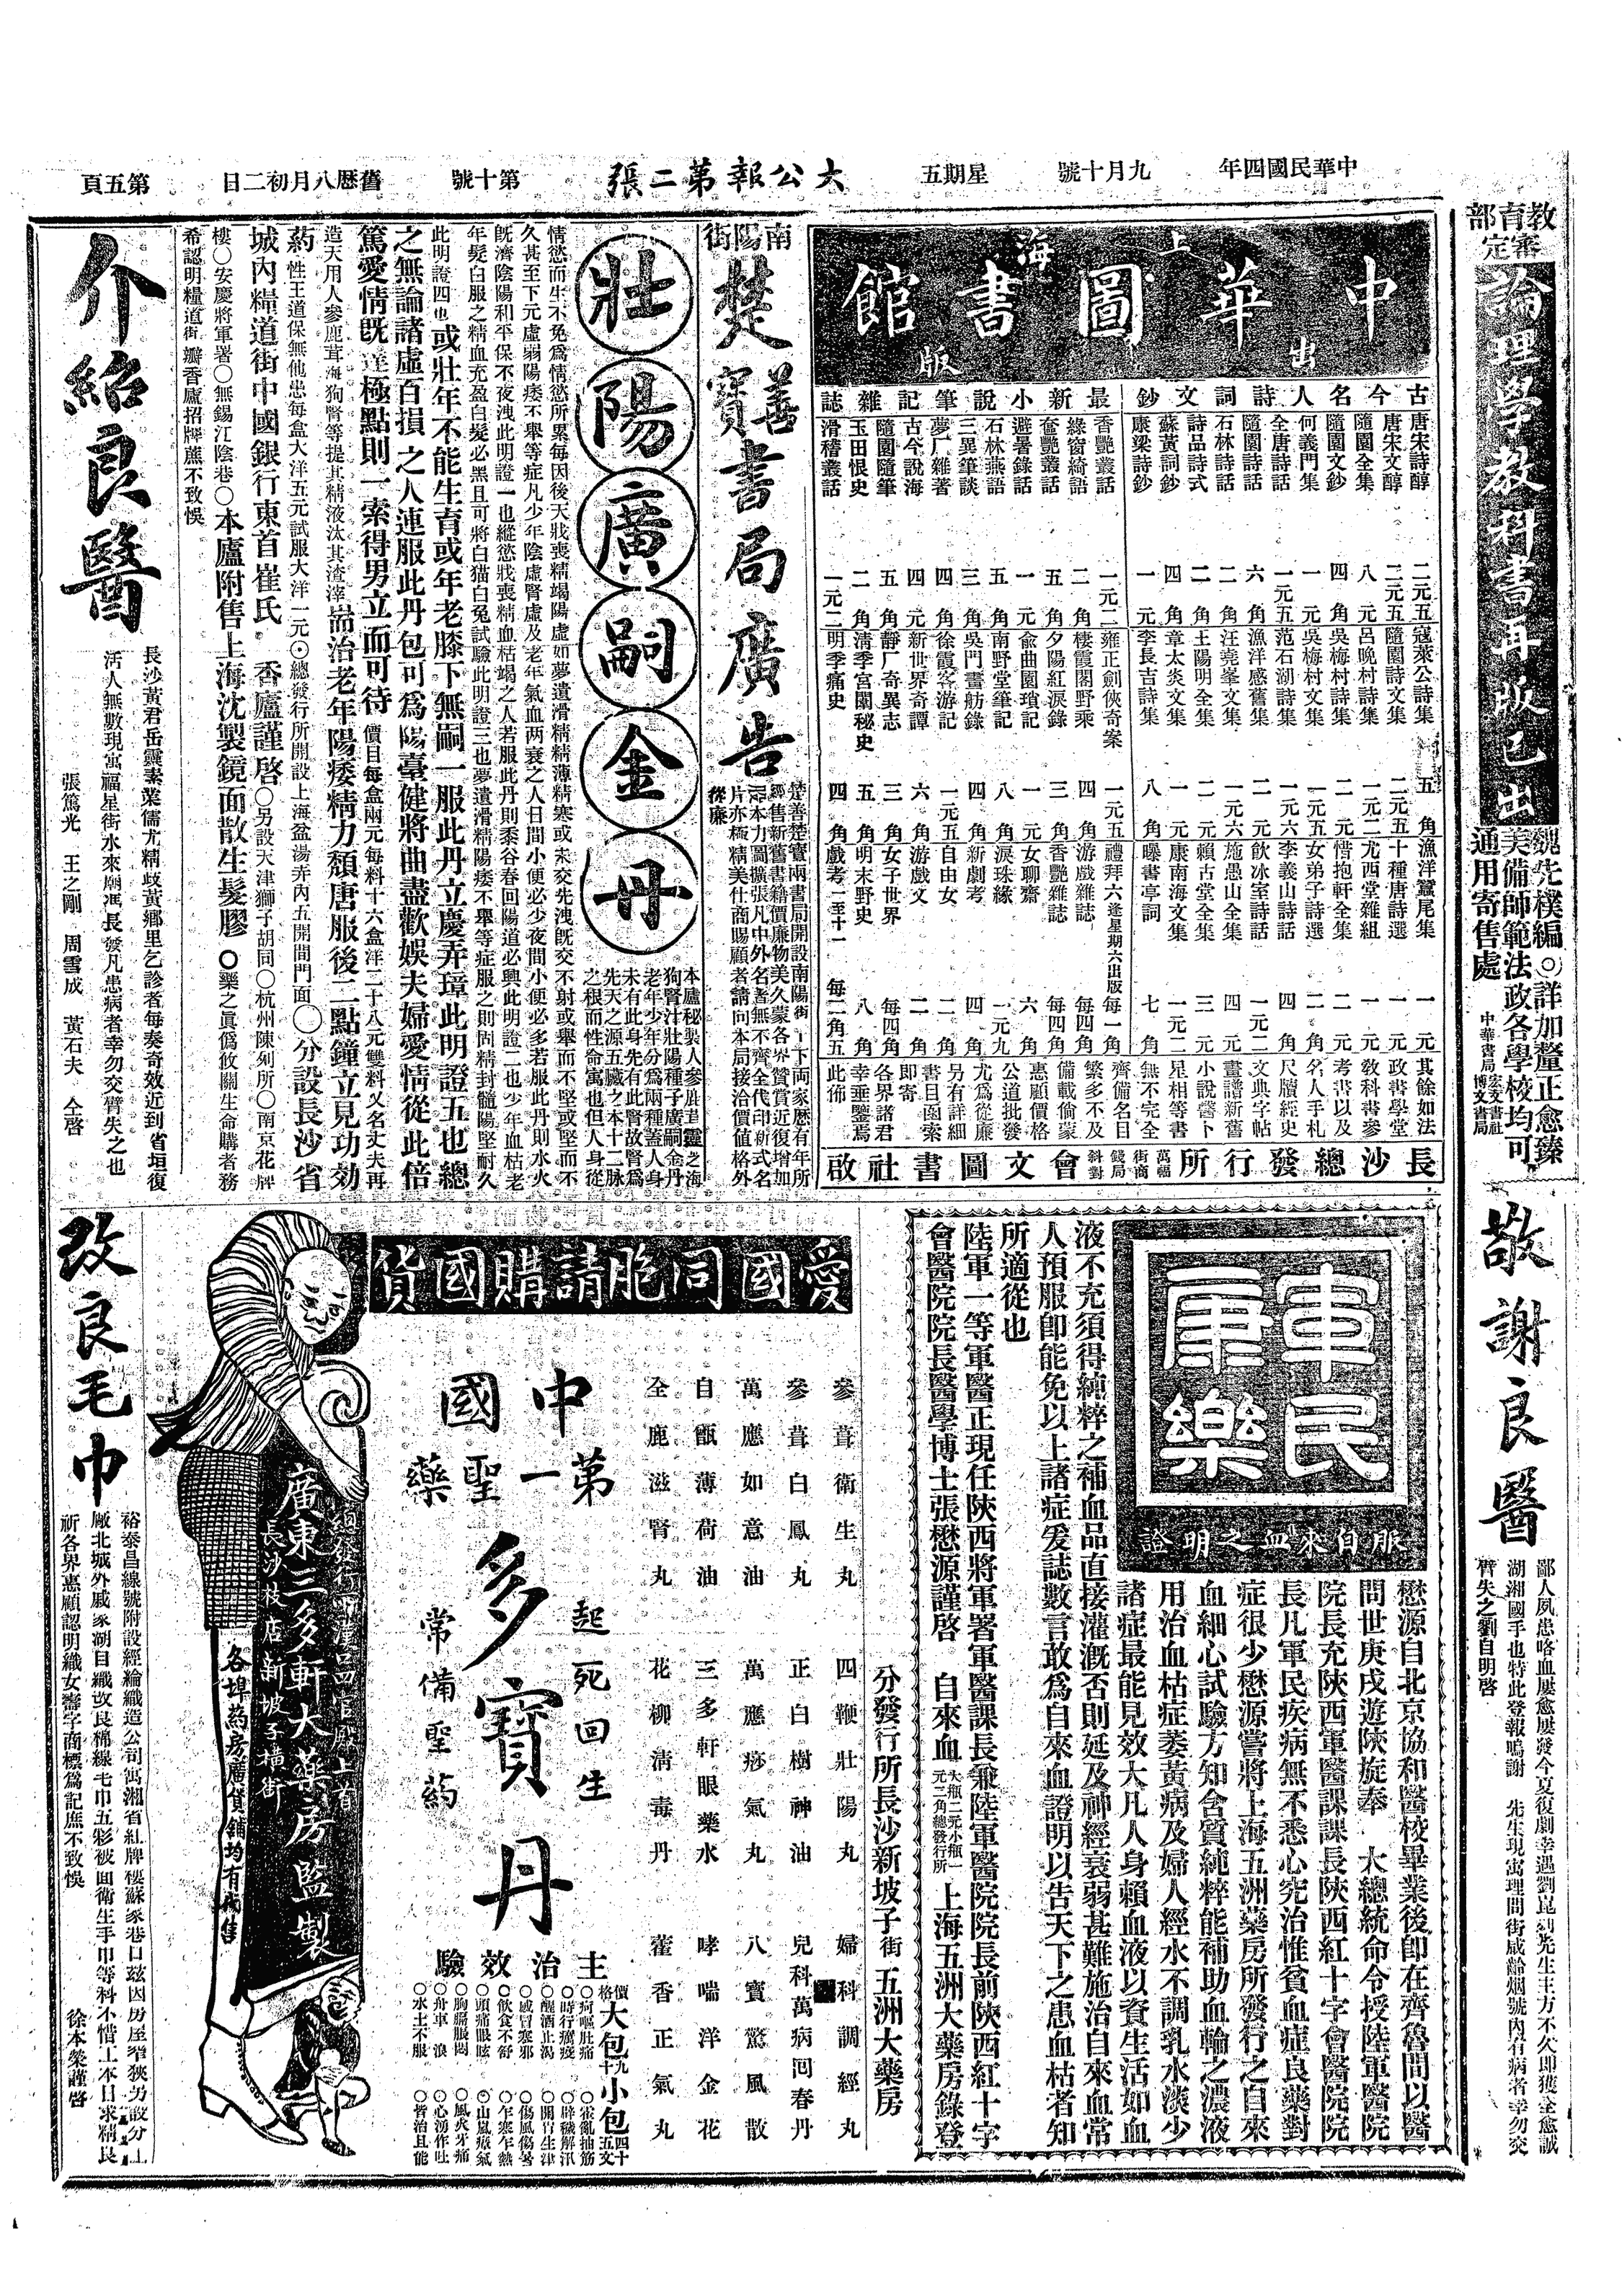 中華民國四年
九月十號
星期五
大公報第二張
第十號
舊歷八月初二日
第五頁
教育部審定
論理學教科書再版已出
魏先樸編○詳加釐正愈臻
美備師範法政各學校均可
通用寄售處
中華書局
宏文書社
博文書局
敬謝良醫
鄙人夙患咯血屢愈屢發今夏復劇幸遇劉崑
先生主方不久即獲全愈誠
湖湘國手也特此登報鳴謝 先生現寓理問街咸齡烟號內有病者幸勿交
臂失之劉自明啓
上海
中華圖書館
出版
古今名人詩詞文鈔
唐宋詩醇 二元五
唐宋文醇 二元五
隨園全集 八元
隨園文鈔 四角
何義門集 一元
全唐詩話 一元五
隨園詩話 六角
石林詩話 二角
詩品詩式 二角
蘇黃詞鈔 四角
康梁詩鈔 一元
寇萊公詩集 五角
隨園詩文集 二元五
呂晚村詩集 一元二
吳梅村詩集 二元
吳梅村文集 一元五
范石湖詩集 一元六
漁洋感舊集 二元
汪堯峯文集 一元六
王陽明全集 二元
章太炎文集 一元
李長吉詩集 八角
漁洋蠶尾集 一元
十種唐詩選 一元
尤西堂雜組 一元
惜抱軒全集 二元
女弟子詩選 二角
李義山詩話 四角
飲冰室詩話 一元二
施愚山全集 四元
賴古堂全集 三元
康南海文集 一元二
曝書亭詞 七角
最新小說筆記雜誌
香艷叢話 一元二
綠窗綺語 二角
奩艷叢話 五角
避暑錄話 一元
石林燕語 五角
三異筆談 三角
夢厂雜著 四角
古今說海 四元
隨園隨筆 五角
玉田恨史 二角
滑稽叢話 一元二
雍正劍俠奇案 一元五
棲霞閣野乘 四角
夕陽紅淚錄 三角
俞曲園瑣記 一元
南野堂筆記 八角
吳門畫舫錄 四角
徐霞客游記 一元五
新世界奇譚 六角
靜厂奇異志 三角
清季宮闈秘史 五角
明季痛史 四角
禮拜六逢星期六出版 每一角
游戲雜誌 每四角
香艷雜誌 每四角
女聊齋 六角
淚珠緣 一元九
新劇考 四角
自由女 二角
游戲文 二角
女子世界 每四角
明末野史 八角
戲考一至十一 每二角五
其餘如法
政書學堂
教科書參
考書以及
名人手札
尺牘經史
文典字帖
畫譜新舊
小說醫卜
星相等書
無不完全
齊備名目
繁多不及
備載倘蒙
惠顧價格
公道批發
尤爲從廉
另有詳細
書目函索
即寄
各界諸君
幸垂鑒焉
此佈
長沙總發行所
萬福街商錢局斜對
會文圖書社啟
南陽街
楚善
寶
書局廣告
楚善楚寶兩書局開設南陽街一下兩家歷有年所
經售新舊書籍價廉物美久蒙各界贊賞近復增加
本力圖擴張凡中外名著無不齊全代印新式名
片亦極精美仕商賜顧者請向本局接洽價値格外
從廉
壯陽廣嗣金丹
本廬秘製人參鹿茸靈之海
狗腎汁壯陽種子廣嗣金丹
老年少年分爲兩種蓋人身
未有此身先有此腎故腎爲
先天之源五臟之本十二脉
之根而性命寓也但人身從
情慾而生不免爲情慾所累每因後天戕喪精竭陽虛如夢遺滑精精薄精寒或未交先洩旣交不射或舉而不堅或堅而不
久甚至下元虛弱陽痿不舉等症凡少年陰虛腎虛及老年氣血兩衰之人日間小便必少夜間小便必多若服此丹則水火
旣濟陰陽和平保不夜洩此明證一也縱慾戕喪精血枯竭之人若服此丹則黍谷春回陽道必興此明證二也少年血枯老
年髮白服之精血充盈白髮必黑且可將白猫白兔試驗此明證三也夢遺滑精陽痿不舉等症服之則固精封髓陽堅耐久
此明證四也或壯年不能生育或年老膝下無嗣一服此丹立慶弄璋此明證五也總
之無論諸虛百損之人連服此丹包可爲陽臺健將曲盡歡娛夫婦愛情從此倍
篤愛情旣達極點則一索得男立而可待 價目每盒兩元每料十六盒洋二十八元雙料乂名丈夫再
造天用人參鹿茸海狗腎等提其精液汰其渣滓耑治老年陽痿精力頹唐服後二點鐘立見功効
葯性王道保無他患每盒大洋五元試服大洋一元⊙總發行所開設上海盆湯弄內五開間門面○分設長沙省
城內糧道街中國銀行東首崔氏 香廬謹啓○另設天津獅子胡同○杭州陳列所○南京花牌
樓○安慶將軍署○無錫江陰巷○本廬附售上海沈製鏡面散生髮膠○藥之眞僞攸關生命購者務
希認明糧道街瓣香廬招牌庶不致悞
介紹良醫
長沙黃君岳靈素業儒尤精歧黃鄉里乞診者每奏奇效近到省垣復
活人無數現寓福星街水來廟馮長發凡患病者幸勿交臂失之也
張篤光 王之剛 周雪成 黃石夫 仝啓
軍民康樂
證明之血來自版
懋源自北京協和醫校畢業後卽在齊魯間以醫
問世庚戌遊陝旋奉 大總統命令授陸軍醫院
院長充陝西軍醫課課長陝西紅十字會醫院院
長凡軍民疾病無不悉心究治惟貧血症良藥對
症很少懋源嘗將上海五洲藥房所發行之自來
血細心試驗方知含質純粹能補助血輪之濃液
用治血枯症萎黃病及婦人經水不調乳水淡少
諸症最能見效大凡人身賴血液以資生活如血
液不充須得純粹之補血品直接灌溉否則延及神經衰弱甚難施治自來血常
人預服卽能免以上諸症爰誌數言敢爲自來血證明以告天下之患血枯者知
所適從也
陸軍一等軍醫正現任陝西將軍署軍醫課長兼陸軍醫院院長前陝西紅十字
會醫院院長醫學博士張懋源謹啓 自來血 大瓶二元小瓶一元二角總發行所 上海五洲大藥房錄登
分發行所長沙新坡子街 五洲大藥房
愛國同胞請購國貨
參茸衛生丸 四鞭壯陽丸 婦科調經丸
參茸白鳳丸 正白樹神油 兒科萬病囘春丹
萬應如意油 萬應痧氣丸 八寶驚風散
自甑薄荷油 三多軒眼藥水 哮喘洋金花
全鹿滋腎丸 花柳清毒丹 藿香正氣丸
中國
第一聖藥
起死回生
多寶丹
常備聖葯
主治效驗
價格大包九十小包四十五文
○疴嘔肚痛 ○霍亂抽筋
○時行癘疫 ○辟穢解汛
○醒酒止渴 ○開胃生津
○感冒寒邪 ○傷風傷暑
○飲食不舒 ○乍寒乍熱
○頭痛眼眩 ○山嵐瘴氣
○胸膈脹悶 ○風火牙痛
○舟車浪 ○心湧作吐
○水土不服 ○皆治且能
總發行所漢口四官殿上首
廣東三多軒大藥房監製
長沙枝店新坡子橫街
各埠葯房廣貨舖均有代售
改良毛巾
裕泰昌線號附設經綸織造公司寓湘省紅牌樓蘇家巷口茲因房屋窄狹另設分工
廠北城外戚家湖目織改良棉線毛巾五彩被面衛生手巾等科不惜工本日求精良
祈各界惠顧認明織女壽字商標爲記庶不致悞 徐本榮謹啓